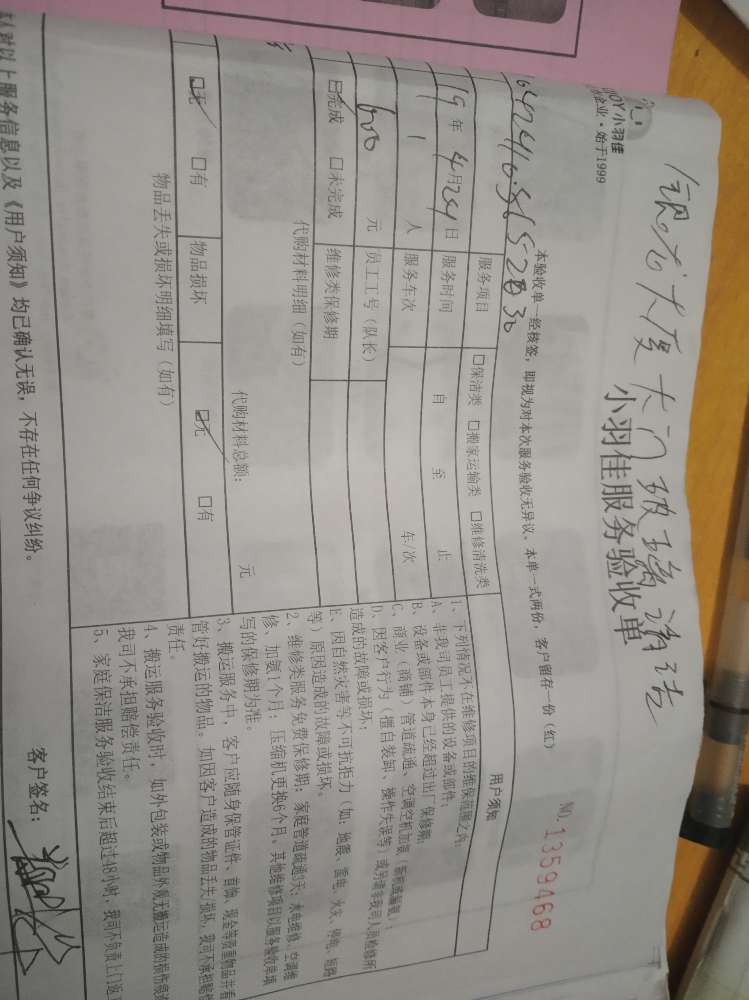 银龙大厦大门玻璃清洁
JOY 小羽佳
企业·始于1999
小羽佳服务验收单
NO. 1359468
本验收单一经核签,即视为对本次服务验收无异议,本单一式两份,客户留存一份(红)
服务项目 □保洁类 □搬家运输类 □维修清洗类
19年4月24日 服务时间 自 至 止
1人 服务车次 车/次
600元 员工工号(队长)
☑完成 □未完成 维修类保修期
代购材料明细(如有)
代购材料总额: 元
☑无 □有 物品损坏 ☑无 □有
物品丢失或损坏明细填写(如有)
用户须知
1、下列情况不在维修项目的维保范围之内:
A、非我司员工提供的设备或部件;
B、设备或部件本身已经超过出厂保修期;
C、商业(商铺)管道疏通、空调空机加氨(新机或漏氨);
D、因客户行为(擅自装卸、操作失误等)或另请非我司人员检修所
造成的故障或损坏;
E、因自然灾害等不可抗拒力(如:地震、雷电、火灾、停电、短路
等)原因造成的故障或损坏。
2、维修类服务免费保修期:家庭管道疏通3天;水电维修、空调维
修、加氨1个月;压缩机更换6个月。其他维修项目以服务验收单填
写的保修期为准。
3、搬运服务中,客户应随身保管证件、首饰、现金等贵重物品并看
管好搬运的物品。如因客户造成的物品丢失/损坏,我司不承担赔偿
责任。
4、搬运服务验收时,如外包装或物品外观无搬运造成的损伤痕迹
我司不承担赔偿责任。
5、家庭保洁服务验收结束后超过48小时,我司不负责上门返工
认对以上服务信息以及《用户须知》均已确认无误,不存在任何争议纠纷。
客户签名: